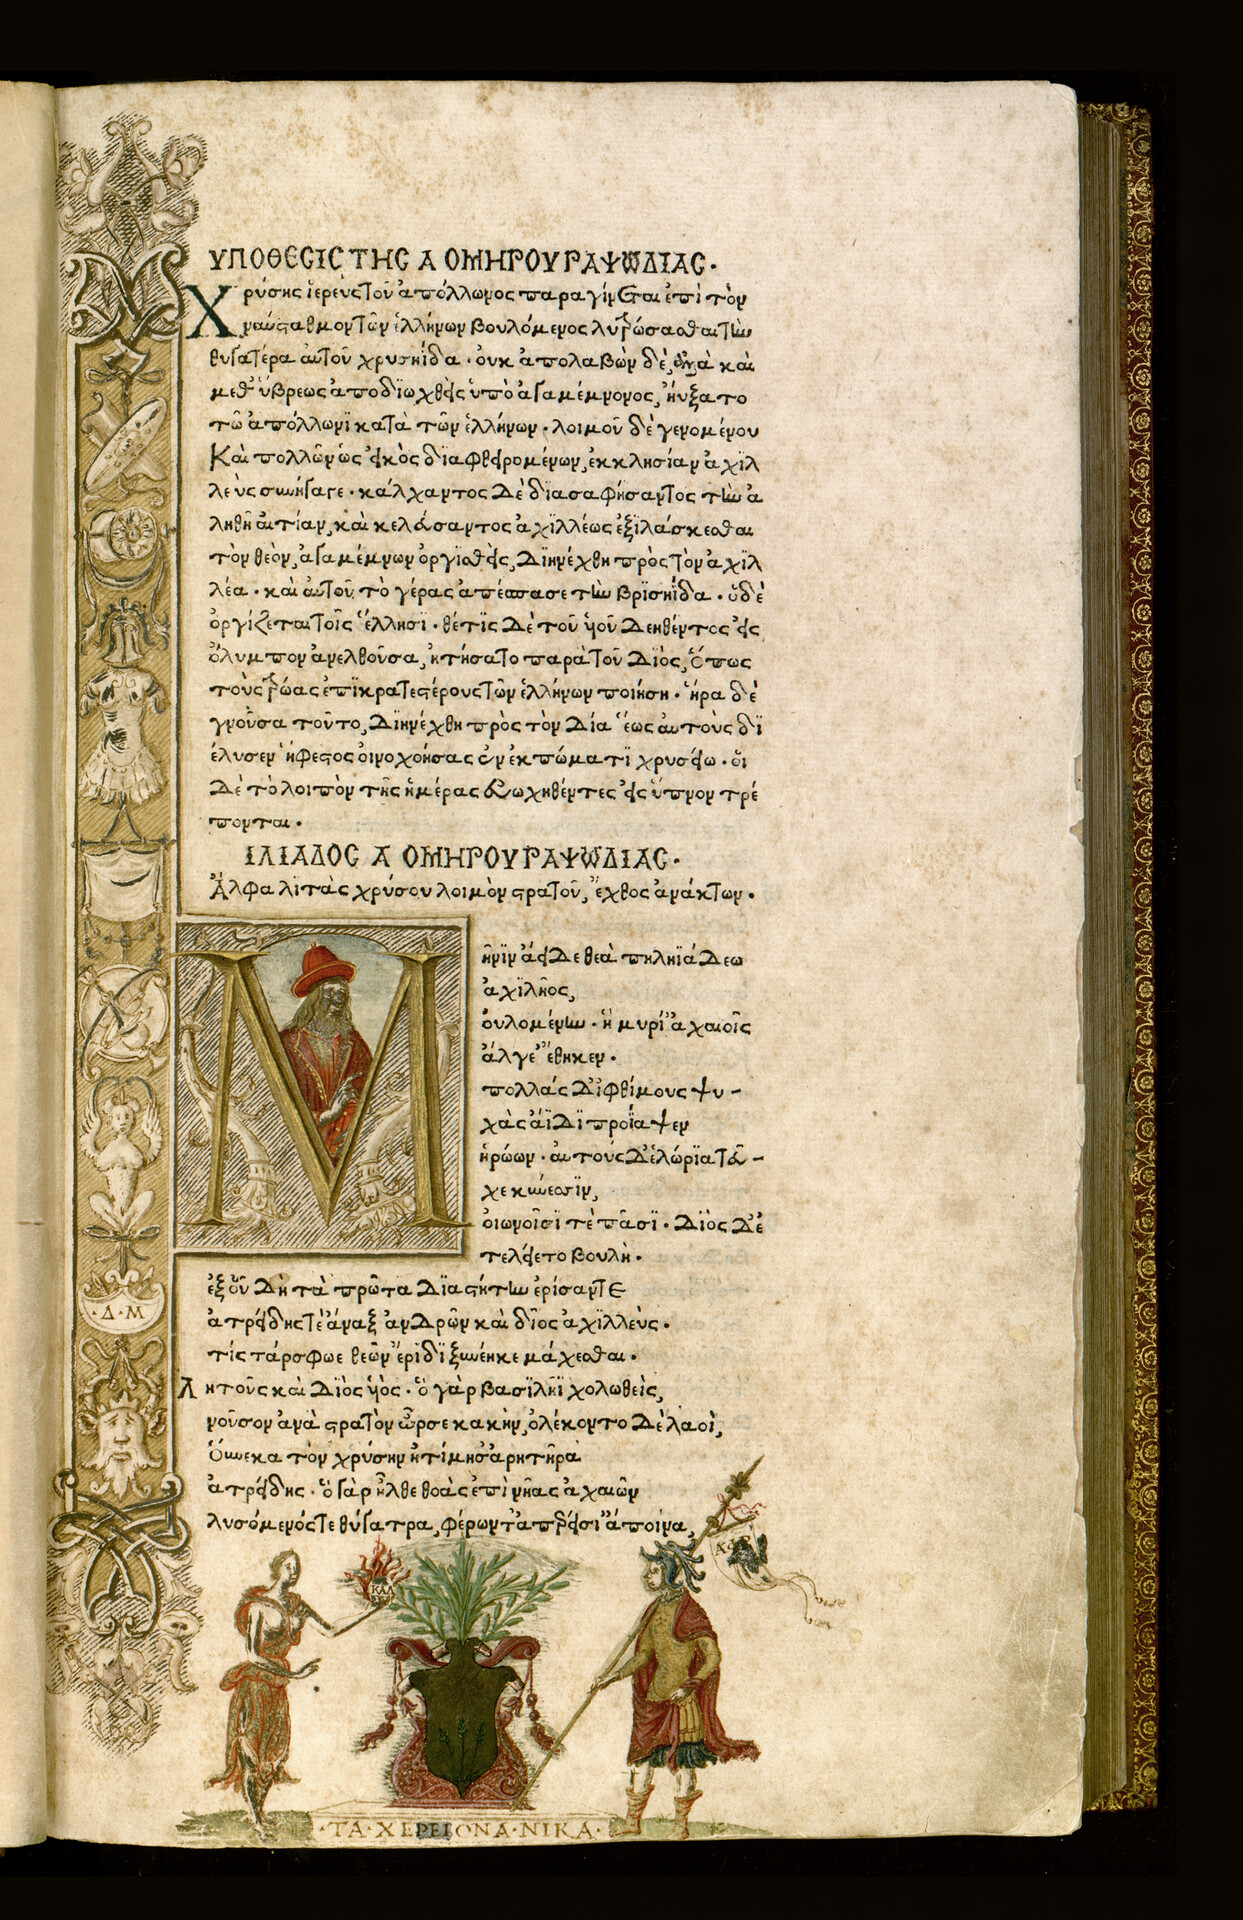 ΥΠΟΘΕСΙС ΤΗС Α ΟΜΗΡΟΥ ΡΑΨΩΔΙΑС·
Χρύσης ἱερεὺς τοῦ ἀπόλλωνος παραγίνεται ἐπὶ τὸν
ναύσταθμον τῶν ἑλλήνων βουλόμενος λυτρώσασθαι τὴν
θυγατέρα αὐτοῦ χρυσηΐδα· οὐκ ἀπολαβὼν δὲ, καὶ
μεθ' ὕβρεως ἀποδϊωχθεὶς ὑπὸ ἀγαμέμνονος, ηὔξατο
τῶ ἀπόλλωνϊ κατὰ τῶν ἑλλήνων· λοιμοῦ δὲ γενομένου
Καὶ πολλῶν ὡς εἰκὸς δϊαφθειρομένων, ἐκκλησίαν ἀχϊλ
λεὺς συνήγαγε· κάλχαντος δὲ δϊασαφήσαντος τὴν ἀ
ληθῆ αἰτίαν, καὶ κελεύσαντος ἀχϊλλέως ἐξϊλάσκεσθαι
τὸν θεὸν, ἀγαμέμνων ὀργϊσθεὶς, δϊηνέχθη πρὸς τὸν ἀχϊλ
λέα· καὶ αὐτοῦ τὸ γέρας ἀπέσπασε τὴν βρϊσηΐδα· ὁ δὲ
ὀργίζεται τοῖς ἕλλησϊ· θέτϊς δὲ τοῦ υἱοῦ δεηθέντος εἰς
ὄλυμπον ἀνελθοῦσα, ἠτήσατο παρὰ τοῦ Διὸς, ὅπως
τοὺς τρῶας ἐπϊκρατεστέρους τῶν ἑλλήνων ποιήση· ἥρα δὲ
γνοῦσα τοῦτο, δϊηνέχθη πρὸς τὸν Δία ἕως αὐτοὺς δϊ
έλυσεν ἥφεστος οἰνοχοήσας ἐν ἐκπώματϊ χρυσείω· οἱ
δὲ τὸ λοιπὸν τῆς ἡμέρας εὐωχηθέντες εἰς ὕπνον τρέ
πονται·
ΙΛΙΑΔΟС Α ΟΜΗΡΟΥ ΡΑΨΩΔΙΑС·
Ἄλφα λϊτὰς χρύσου λοιμὸν στρατοῦ, ἔχθος ἀνάκτων·
Μῆνϊν ἄειδε θεὰ πηληϊάδεω
ἀχϊλῆος,
οὐλομένην· ἣ μυρί' ἀχαιοῖς
ἄλγε' ἔθηκεν·
πολλὰς δ' ἰφθίμους ψυ-
χὰς ἄϊδϊ προΐαψεν
ἡρώων· αὐτοὺς δ' ἑλώρϊα τεῦ-
χε κύνεσσϊν,
οἰωνοῖσϊ τὲ πᾶσϊ· Δϊὸς δ' ἐ
τελείετο βουλὴ·
ἐξ οὗ δὴ τὰ πρῶτα δϊαστήτην ἐρίσαντε
ἀτρείδης τὲ ἄναξ ἀνδρῶν καὶ δῖος ἀχϊλλεὺς·
τίς τάρ σφωε θεῶν ἔρϊδϊ ξυνέηκε μάχεσθαι·
Λητοῦς καὶ Δϊὸς υἱὸς· ὃ γὰρ βασϊλῆϊ χολωθεὶς,
νοῦσον ἀνὰ στρατὸν ὦρσε κακὴν, ὀλέκοντο δὲ λαοὶ,
Οὕνεκα τὸν χρύσην ἠτίμησ' ἀρητῆρα
ἀτρείδης· ὃ γὰρ ἦλθε θοὰς ἐπὶ νῆας ἀχαιῶν
λυσόμενός τε θύγατρα, φέρων τ' ἀπερείσι' ἄποινα,
·Δ·Μ·
ΚΑΛ
·ΤΑ·ΧΕΡΕΙΟΝΑ·ΝΙΚΑ·